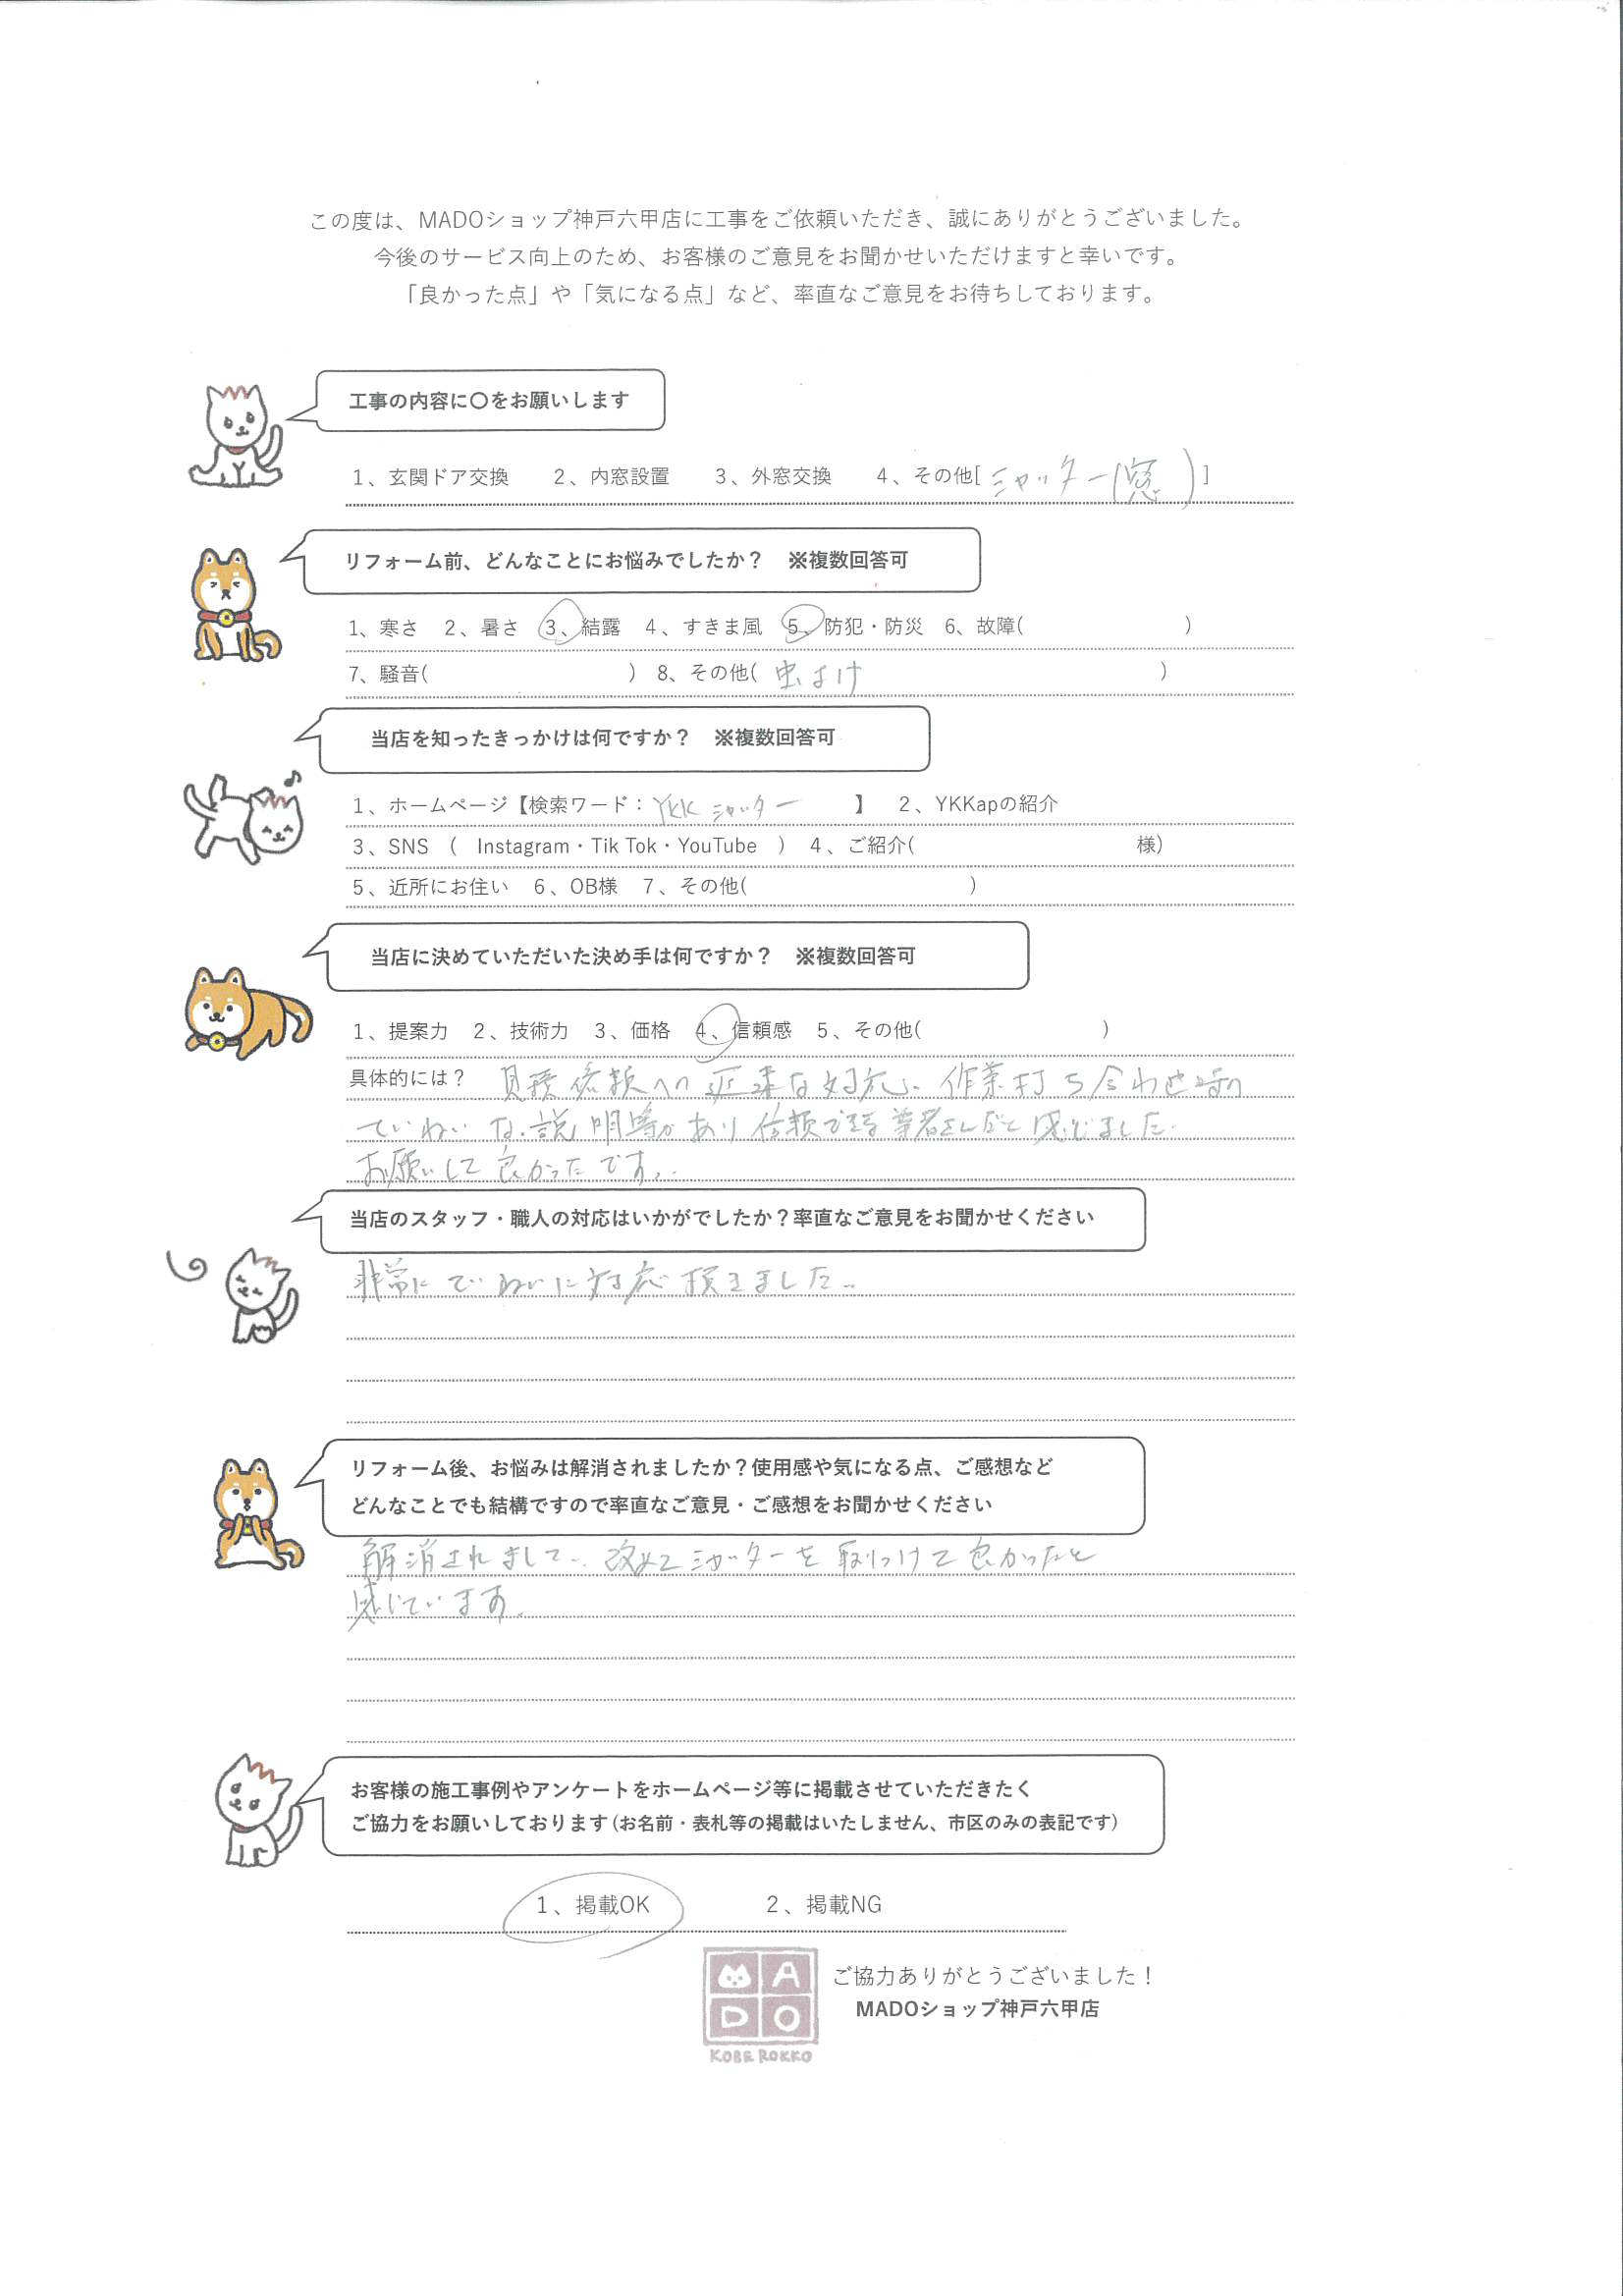 この度は、MADOショップ神戸六甲店に工事をご依頼いただき、誠にありがとうございました。
今後のサービス向上のため、お客様のご意見をお聞かせいただけますと幸いです。
「良かった点」や「気になる点」など、率直なご意見をお待ちしております。
工事の内容に〇をお願いします
1、玄関ドア交換 2、内窓設置 3、外窓交換 4、その他[ シャッター(窓) ]
リフォーム前、どんなことにお悩みでしたか？ ※複数回答可
1、寒さ 2、暑さ 3、結露 4、すきま風 5、防犯・防災 6、故障( )
7、騒音( ) 8、その他( 虫よけ )
当店を知ったきっかけは何ですか？ ※複数回答可
1、ホームページ【検索ワード：YKK シャッター 】 2、YKKapの紹介
3、SNS ( Instagram・Tik Tok・YouTube ) 4、ご紹介( 様)
5、近所にお住い 6、OB様 7、その他( )
当店に決めていただいた決め手は何ですか？ ※複数回答可
1、提案力 2、技術力 3、価格 4、信頼感 5、その他( )
具体的には？ 見積依頼への迅速な対応、作業打ち合わせ時の
ていねいな説明等があり信頼できる業者さんだと感じました.
お願いして良かったです。
当店のスタッフ・職人の対応はいかがでしたか？率直なご意見をお聞かせください
非常にていねいに対応頂きました。
リフォーム後、お悩みは解消されましたか？使用感や気になる点、ご感想など
どんなことでも結構ですので率直なご意見・ご感想をお聞かせください
解消されまして、改めてシャッターを取りつけて良かったと
感じています。
お客様の施工事例やアンケートをホームページ等に掲載させていただきたく
ご協力をお願いしております(お名前・表札等の掲載はいたしません、市区のみの表記です)
1、掲載OK 2、掲載NG
MADO
KOBE ROKKO
ご協力ありがとうございました！
MADOショップ神戸六甲店